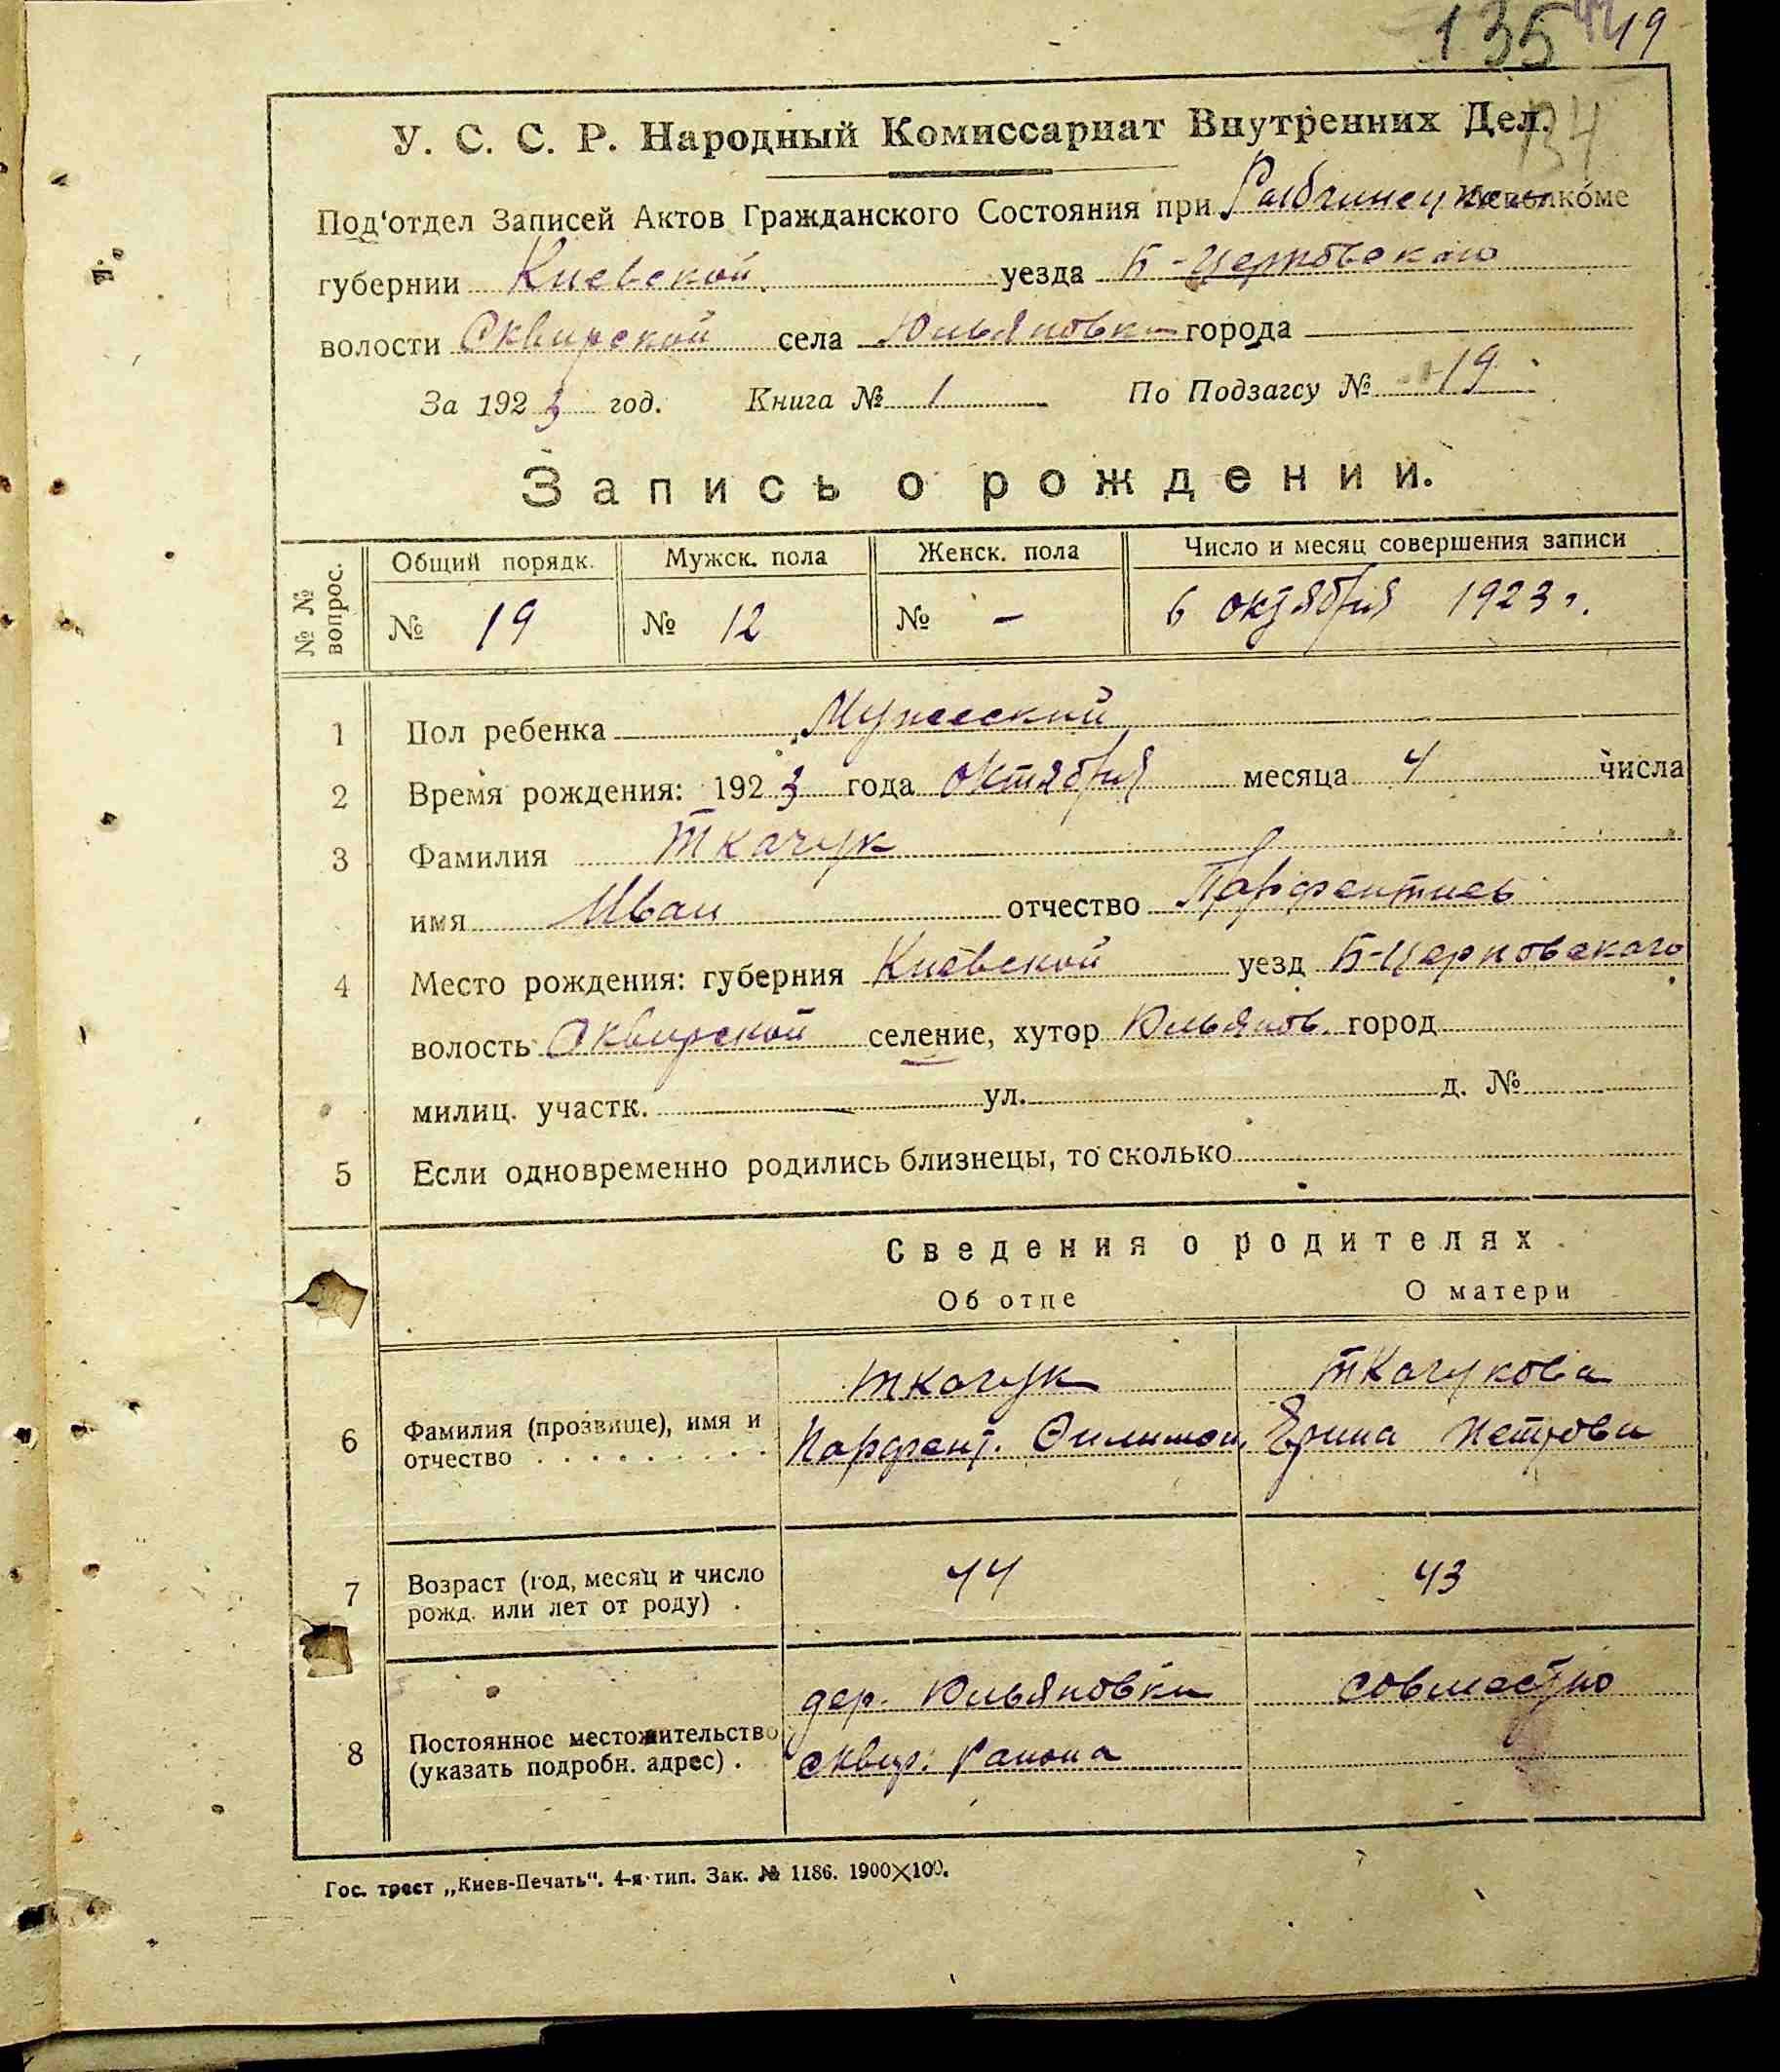 135 19
134
У. С. С. Р. Народный Комиссариат Внутренних Дел.
Под'отдел Записей Актов Гражданского Состояния при
губернии Киевской уезда Б-Церковского
волости Сквирской села Юльяновки города
За 1923 год. Книга № 1 По Подзагсу № 19
Запись о рождении.
№ № вопрос. Общий порядк. Мужск. пола Женск. пола Число и месяц совершения записи
№ 19 № 12 № - 6 октября 1923 г.
1 Пол ребенка Мужеский
2 Время рождения: 1923 года октября месяца 4 числа
3 Фамилия Ткачук
имя Иван отчество Парфентиев
4 Место рождения: губерния Киевской уезд Б-Церковского
волость Сквирской селение, хутор Юльянов. город
милиц. участк. ул. д. №
5 Если одновременно родились близнецы, то сколько
Сведения о родителях
Об отце О матери
Ткачук Ткачукова
6 Фамилия (прозвище), имя и отчество Парфент. Филимон. Ерина Петрова
7 Возраст (год, месяц и число рожд. или лет от роду) . 44 43
дер. Юльяновки совместно
8 Постоянное местожительство (указать подробн. адрес) . сквир. района
Гос. трест „Киев-Печать“. 4-я тип. Зак. № 1186. 1900×100.